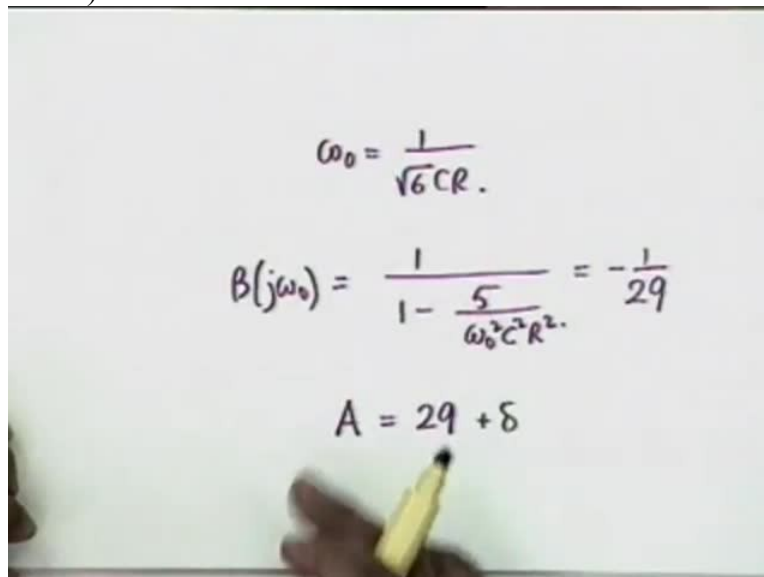 ω₀ = 1 / √6 CR.
β(jω₀) = 1 / (1 - 5 / ω₀²C²R².) = - 1/29
A = 29 + δ